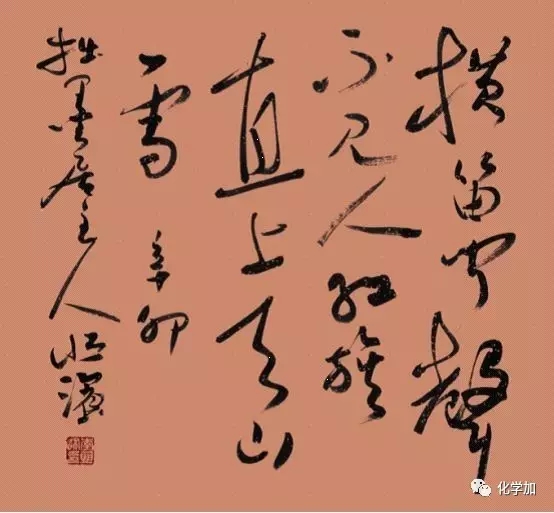 横笛聞聲
不见人红旗
直上天山
雪 辛卯
拙墨居主人
化学加